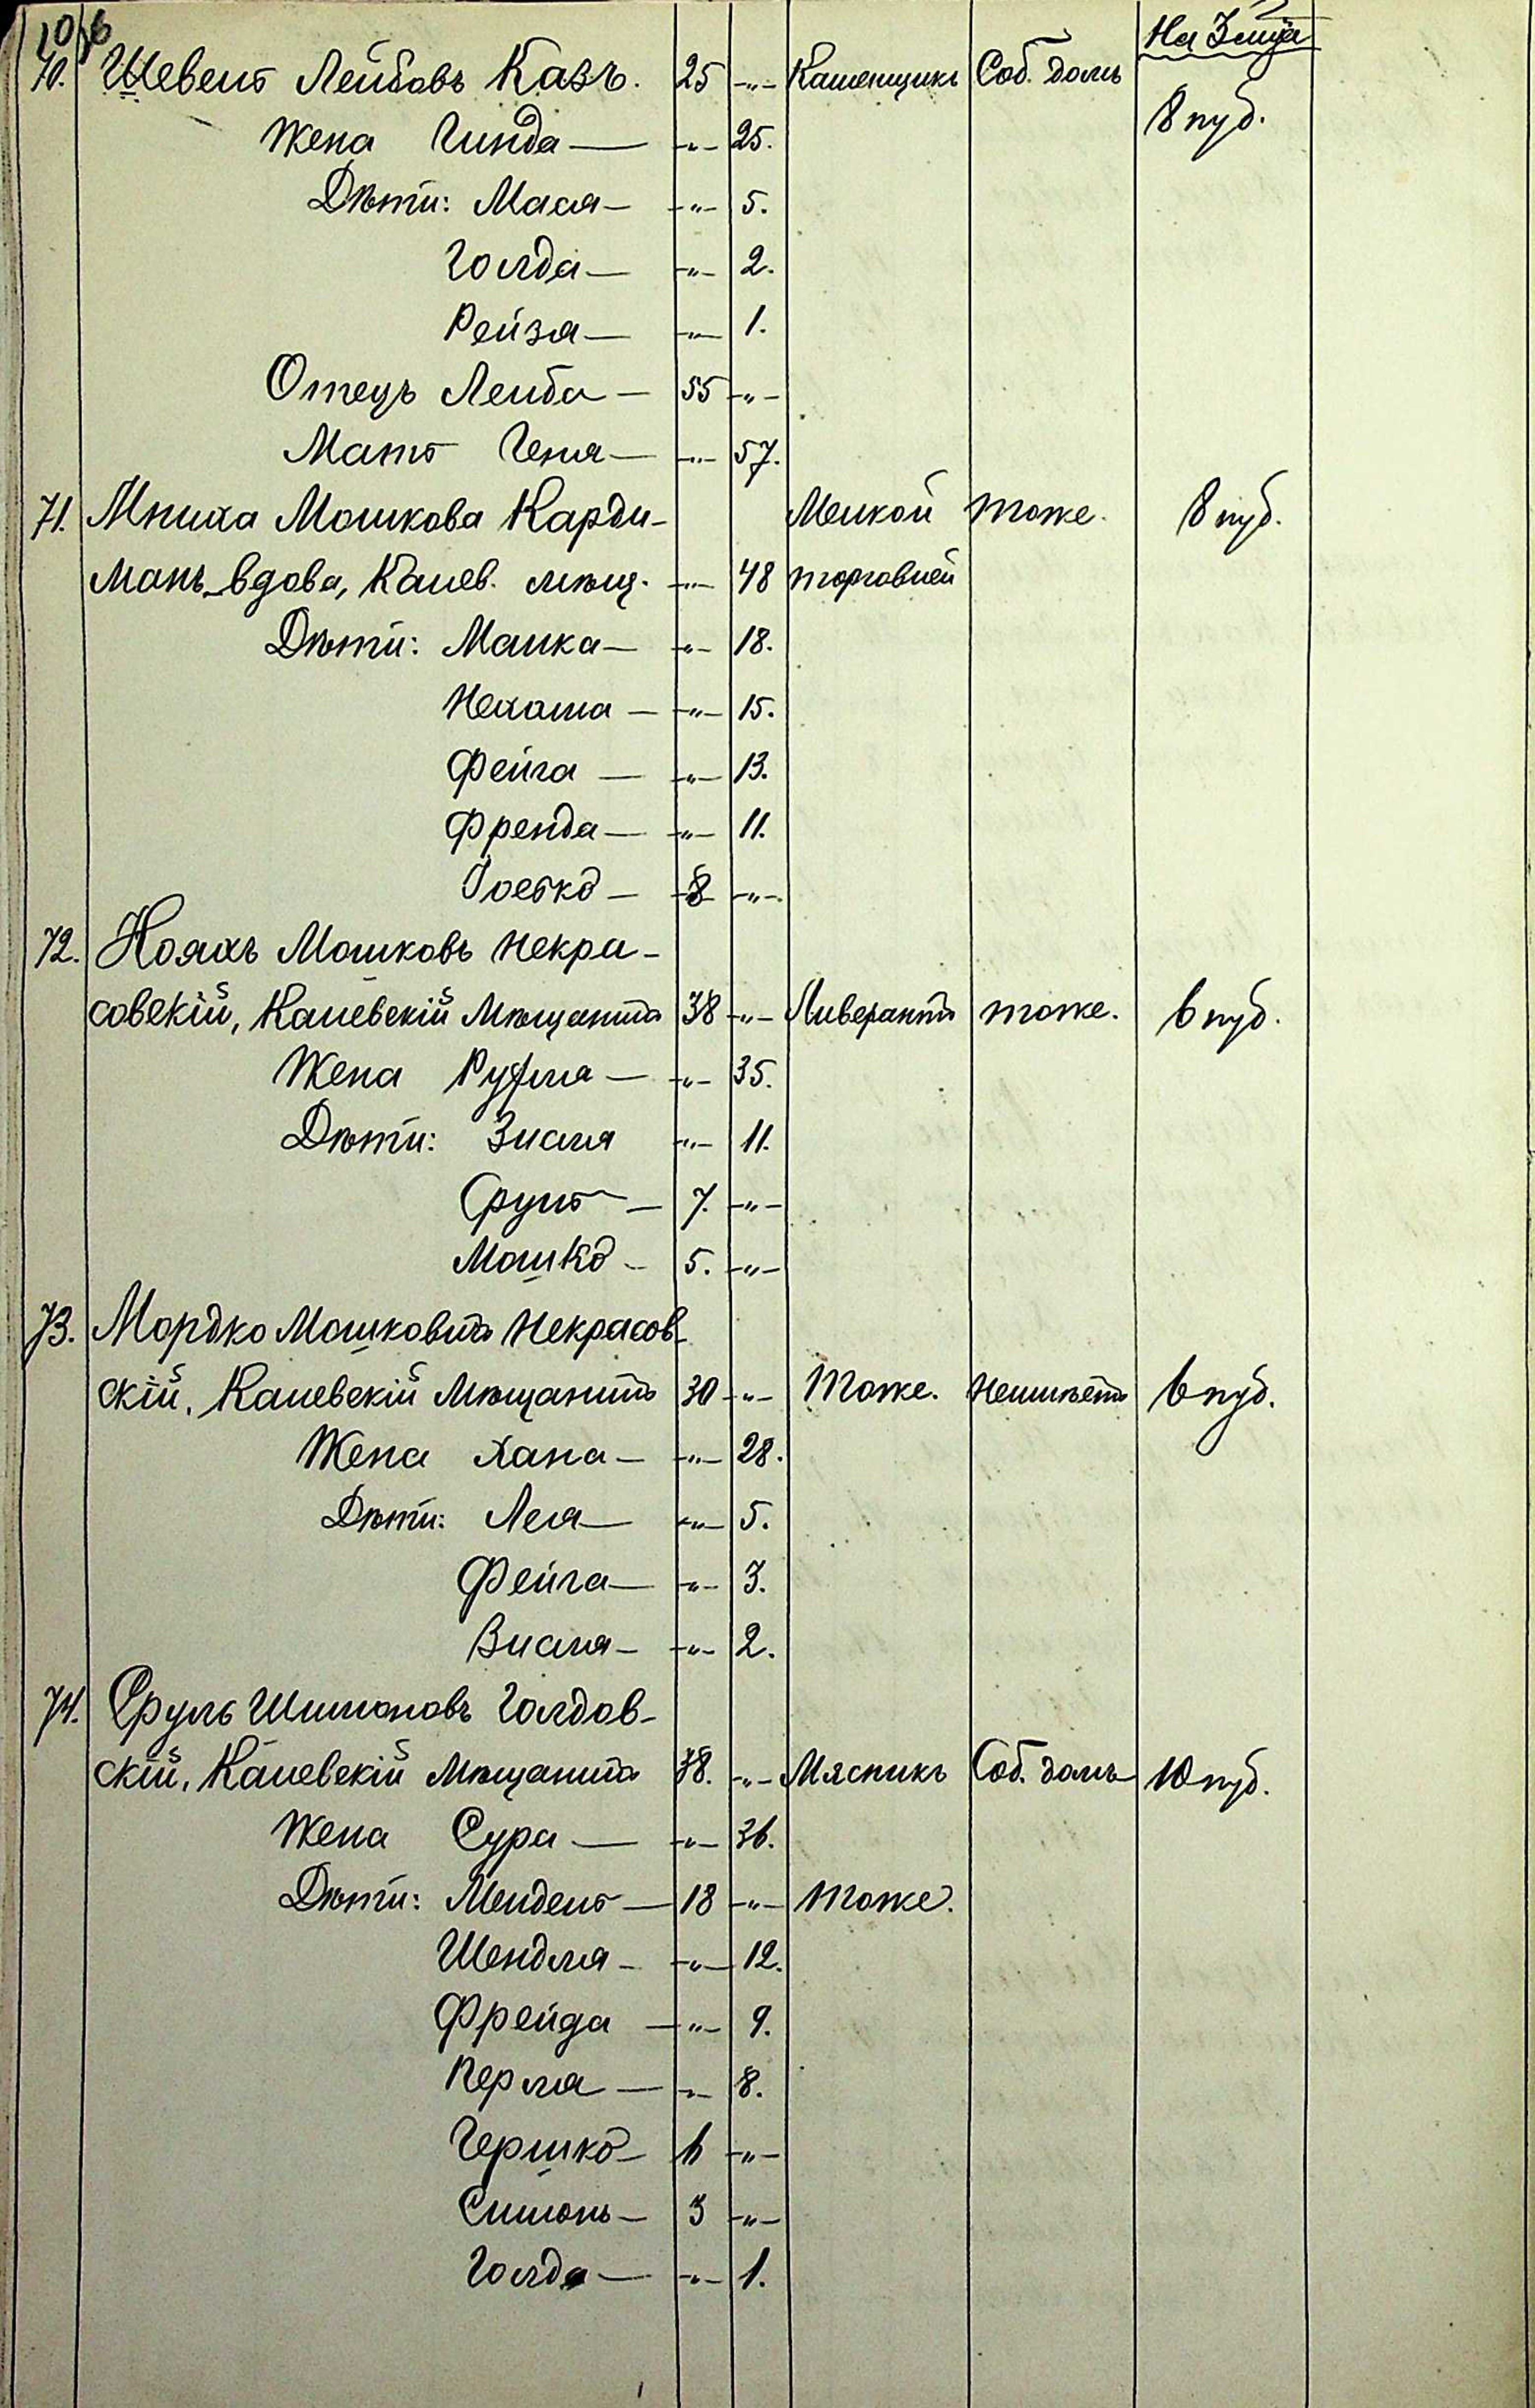 10/6
На Зляца
70. Шевель Лейбовъ Казъ. 25 -"- Каменщикъ Соб. домъ 8 пуд.
Жена Гинда — -"- 25.
Дѣти: Мася — -"- 5.
Голда — -"- 2.
Рейзя — -"- 1.
Отецъ Лейба — 55 -"-
Мать Геня — -"- 57.
71. Мниха Мошкова Карди- Мелкой тоже. 8 пуд.
манъ вдова, Канев. мѣщ. -"- 48 торговлей
Дѣти: Малка — -"- 18.
Нехама — -"- 15.
Фейга — -"- 13.
Френда — -"- 11.
Iоськo — 8 -"-.
72. Нояхъ Мошковъ Некра-
совскій, Каневскій Мѣщанинъ 38 -"- Ливерантъ тоже. 6 пуд.
Жена Рухля — -"- 35.
Дѣти: Зисля -"- 11.
Сруль — 7. -"-
Мошко — 5. -"-
73. Мордко Мошковичъ Некрасов-
скій, Каневскій Мѣщанинъ 30 -"- Тоже. Неимѣетъ 6 пуд.
Жена Хана — -"- 28.
Дѣти: Лея — -"- 5.
Фейга — -"- 3.
Висля — -"- 2.
74. Сруль Шимоновъ Голдов-
скій, Каневскій Мѣщанинъ 38. -"- Мясникъ Соб. домъ 10 пуд.
Жена Сура — -"- 36.
Дѣти: Мендель — 18 -"- Тоже.
Шендля — -"- 12.
Фрейда — -"- 9.
Перля — -"- 8.
Гершко — 6 -"-
Симонъ — 3 -"-
Голда — -"- 1.